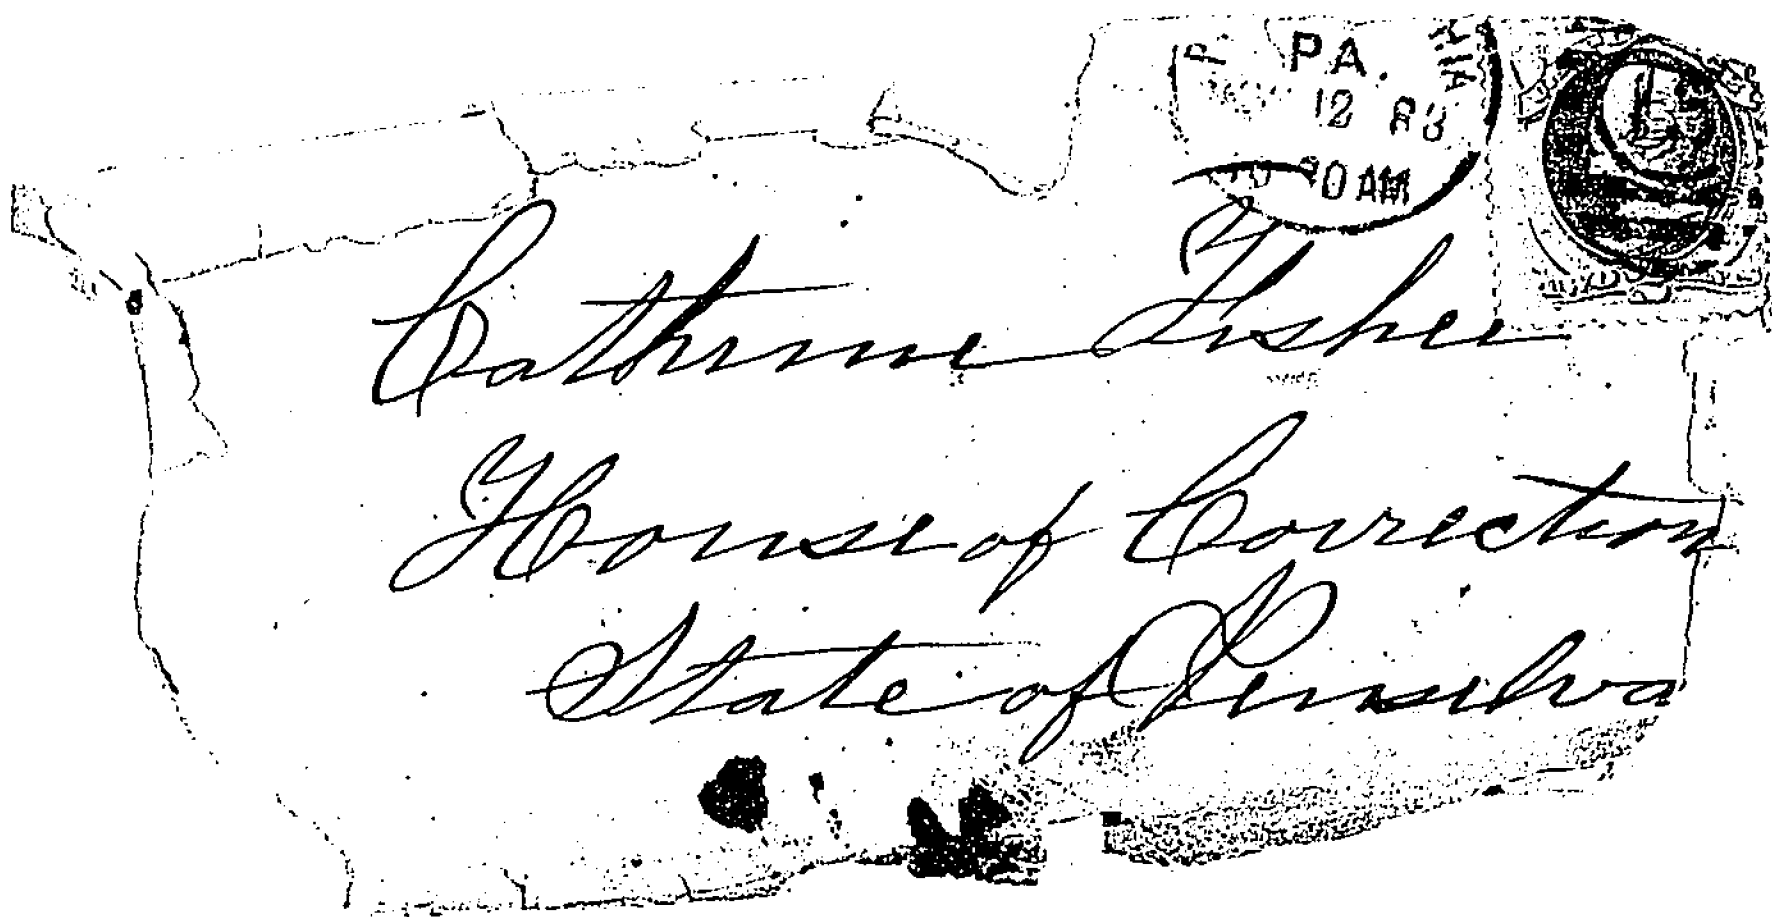 PA.
12 83
Cathrine Fisher
House of Correction
State of Penselva